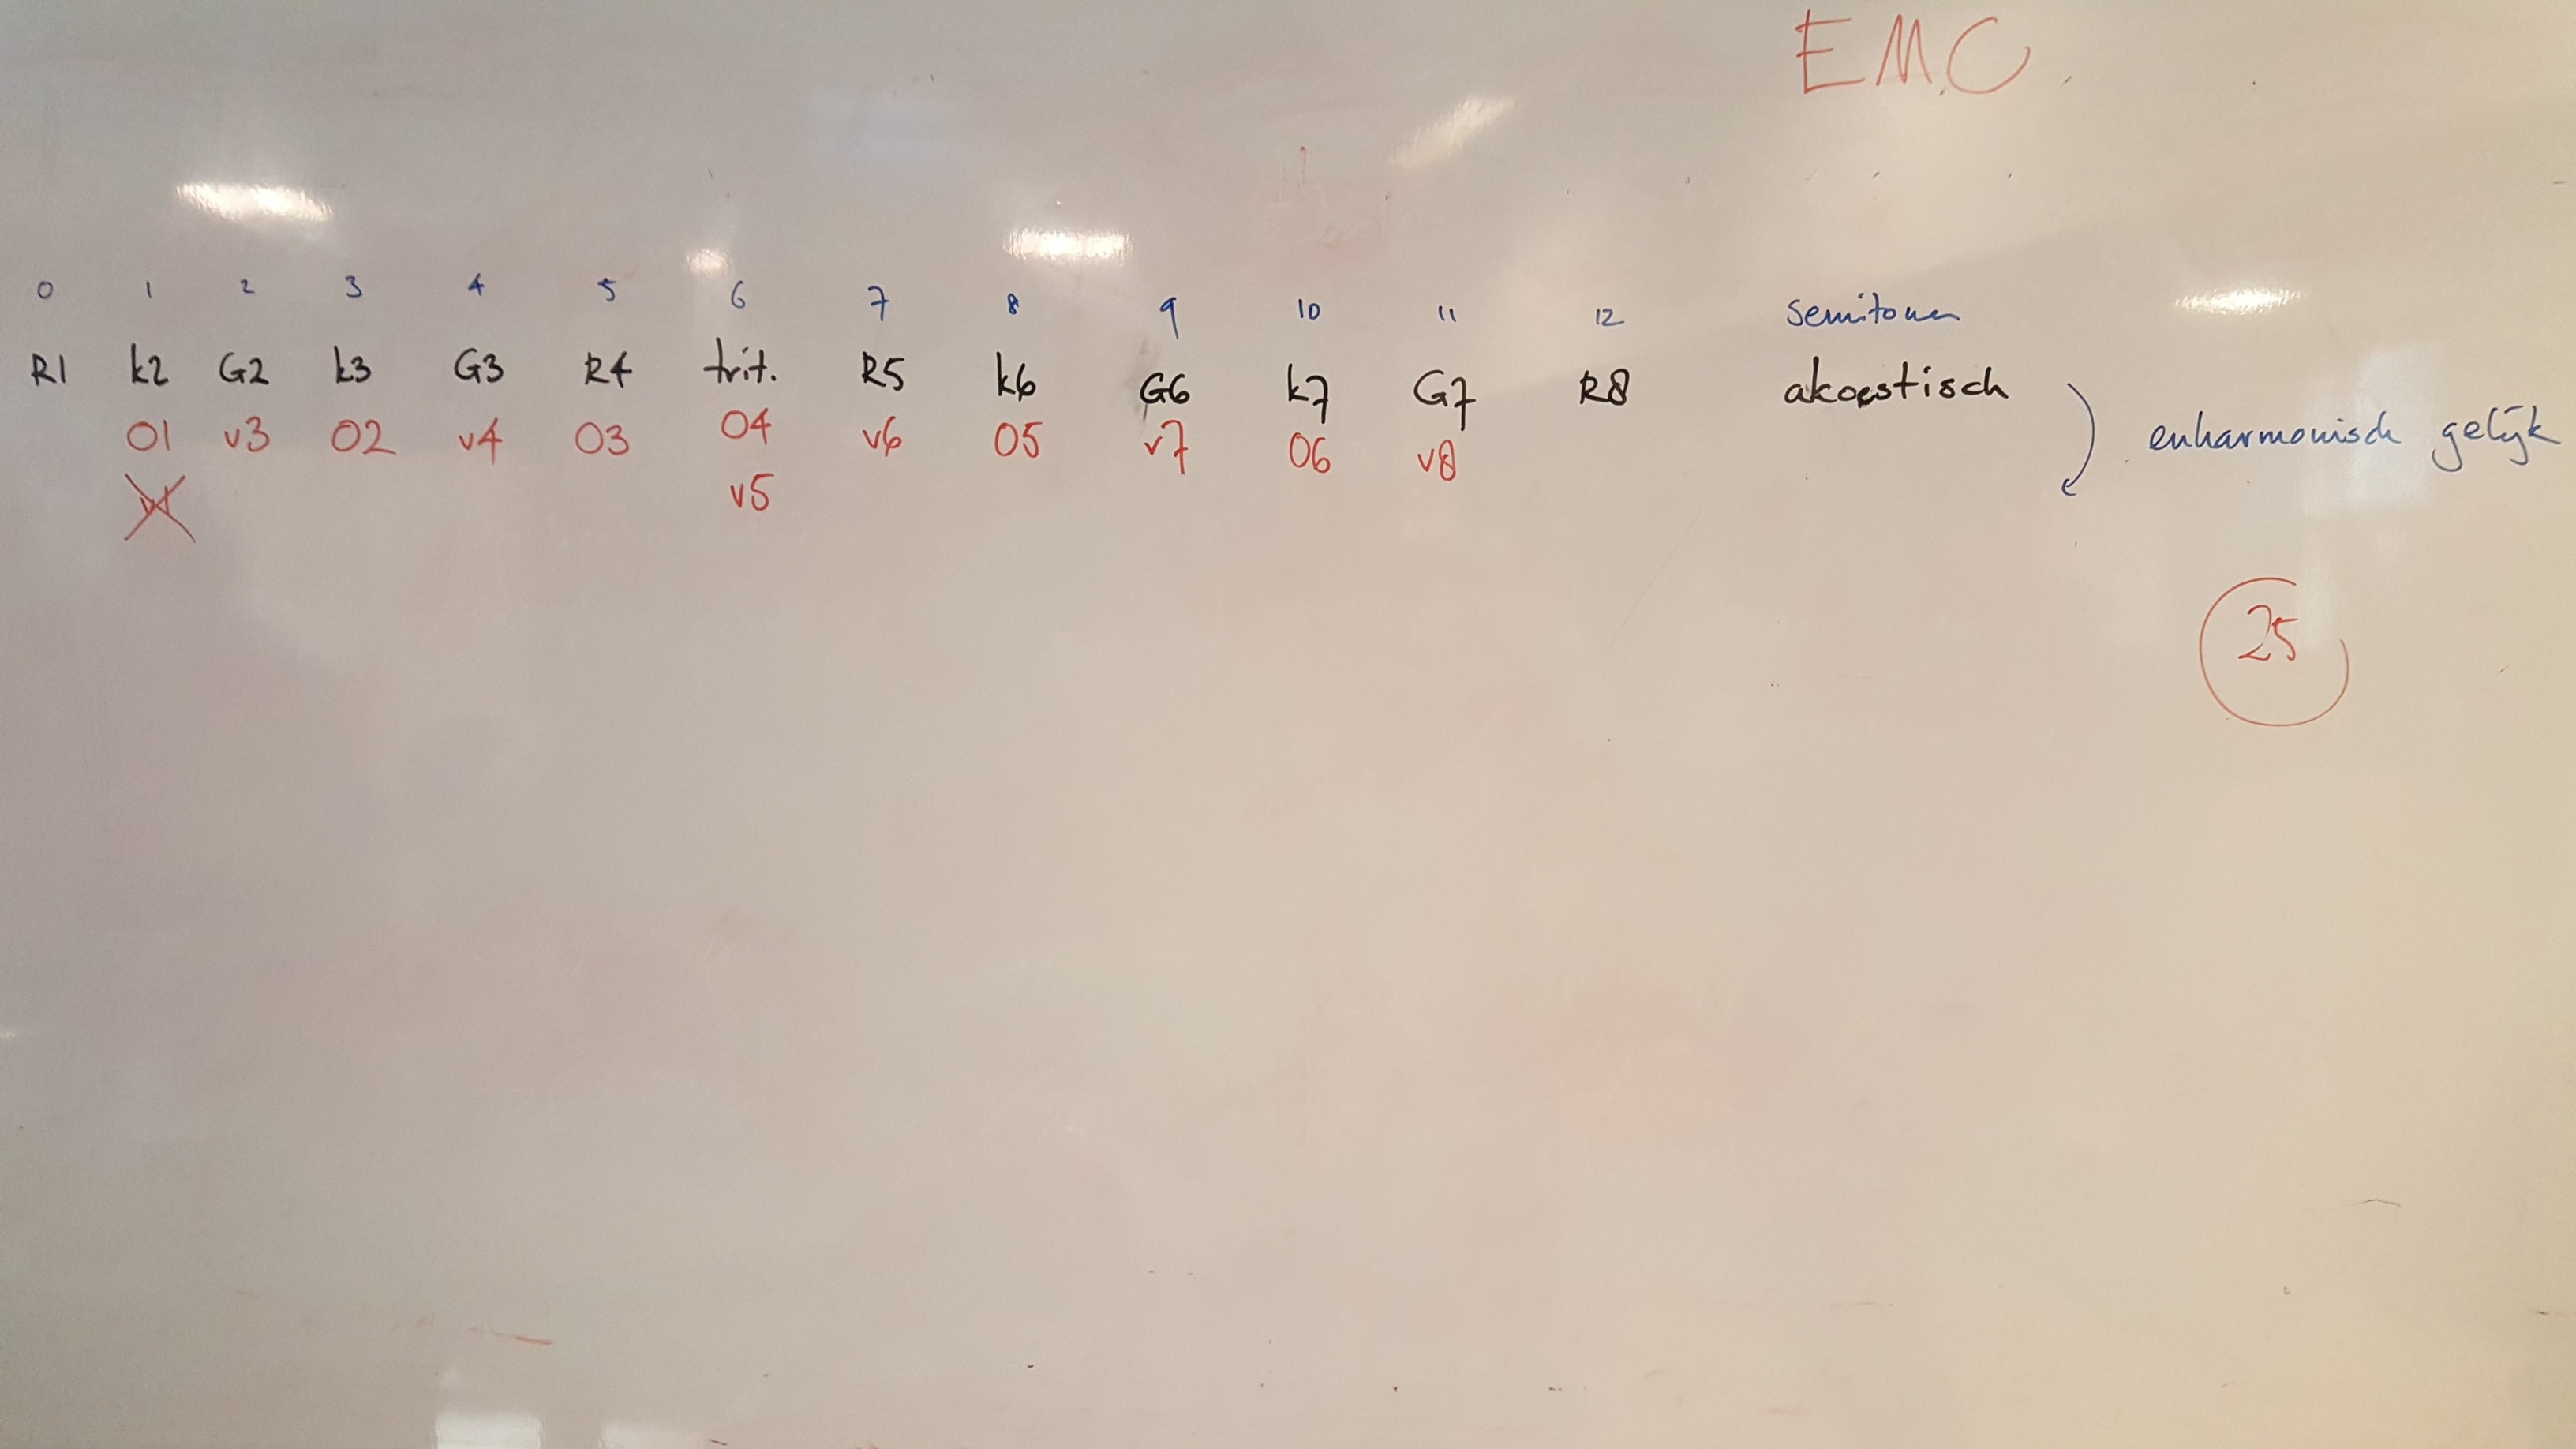 EMC
0 1 2 3 4 5 6 7 8 9 10 11 12 semitonen
R1 k2 G2 k3 G3 R4 trit. R5 k6 G6 k7 G7 R8 akoestisch
O1 v3 O2 v4 O3 O4 v6 O5 v7 O6 v8 enharmonisch gelijk
v1 v5
25